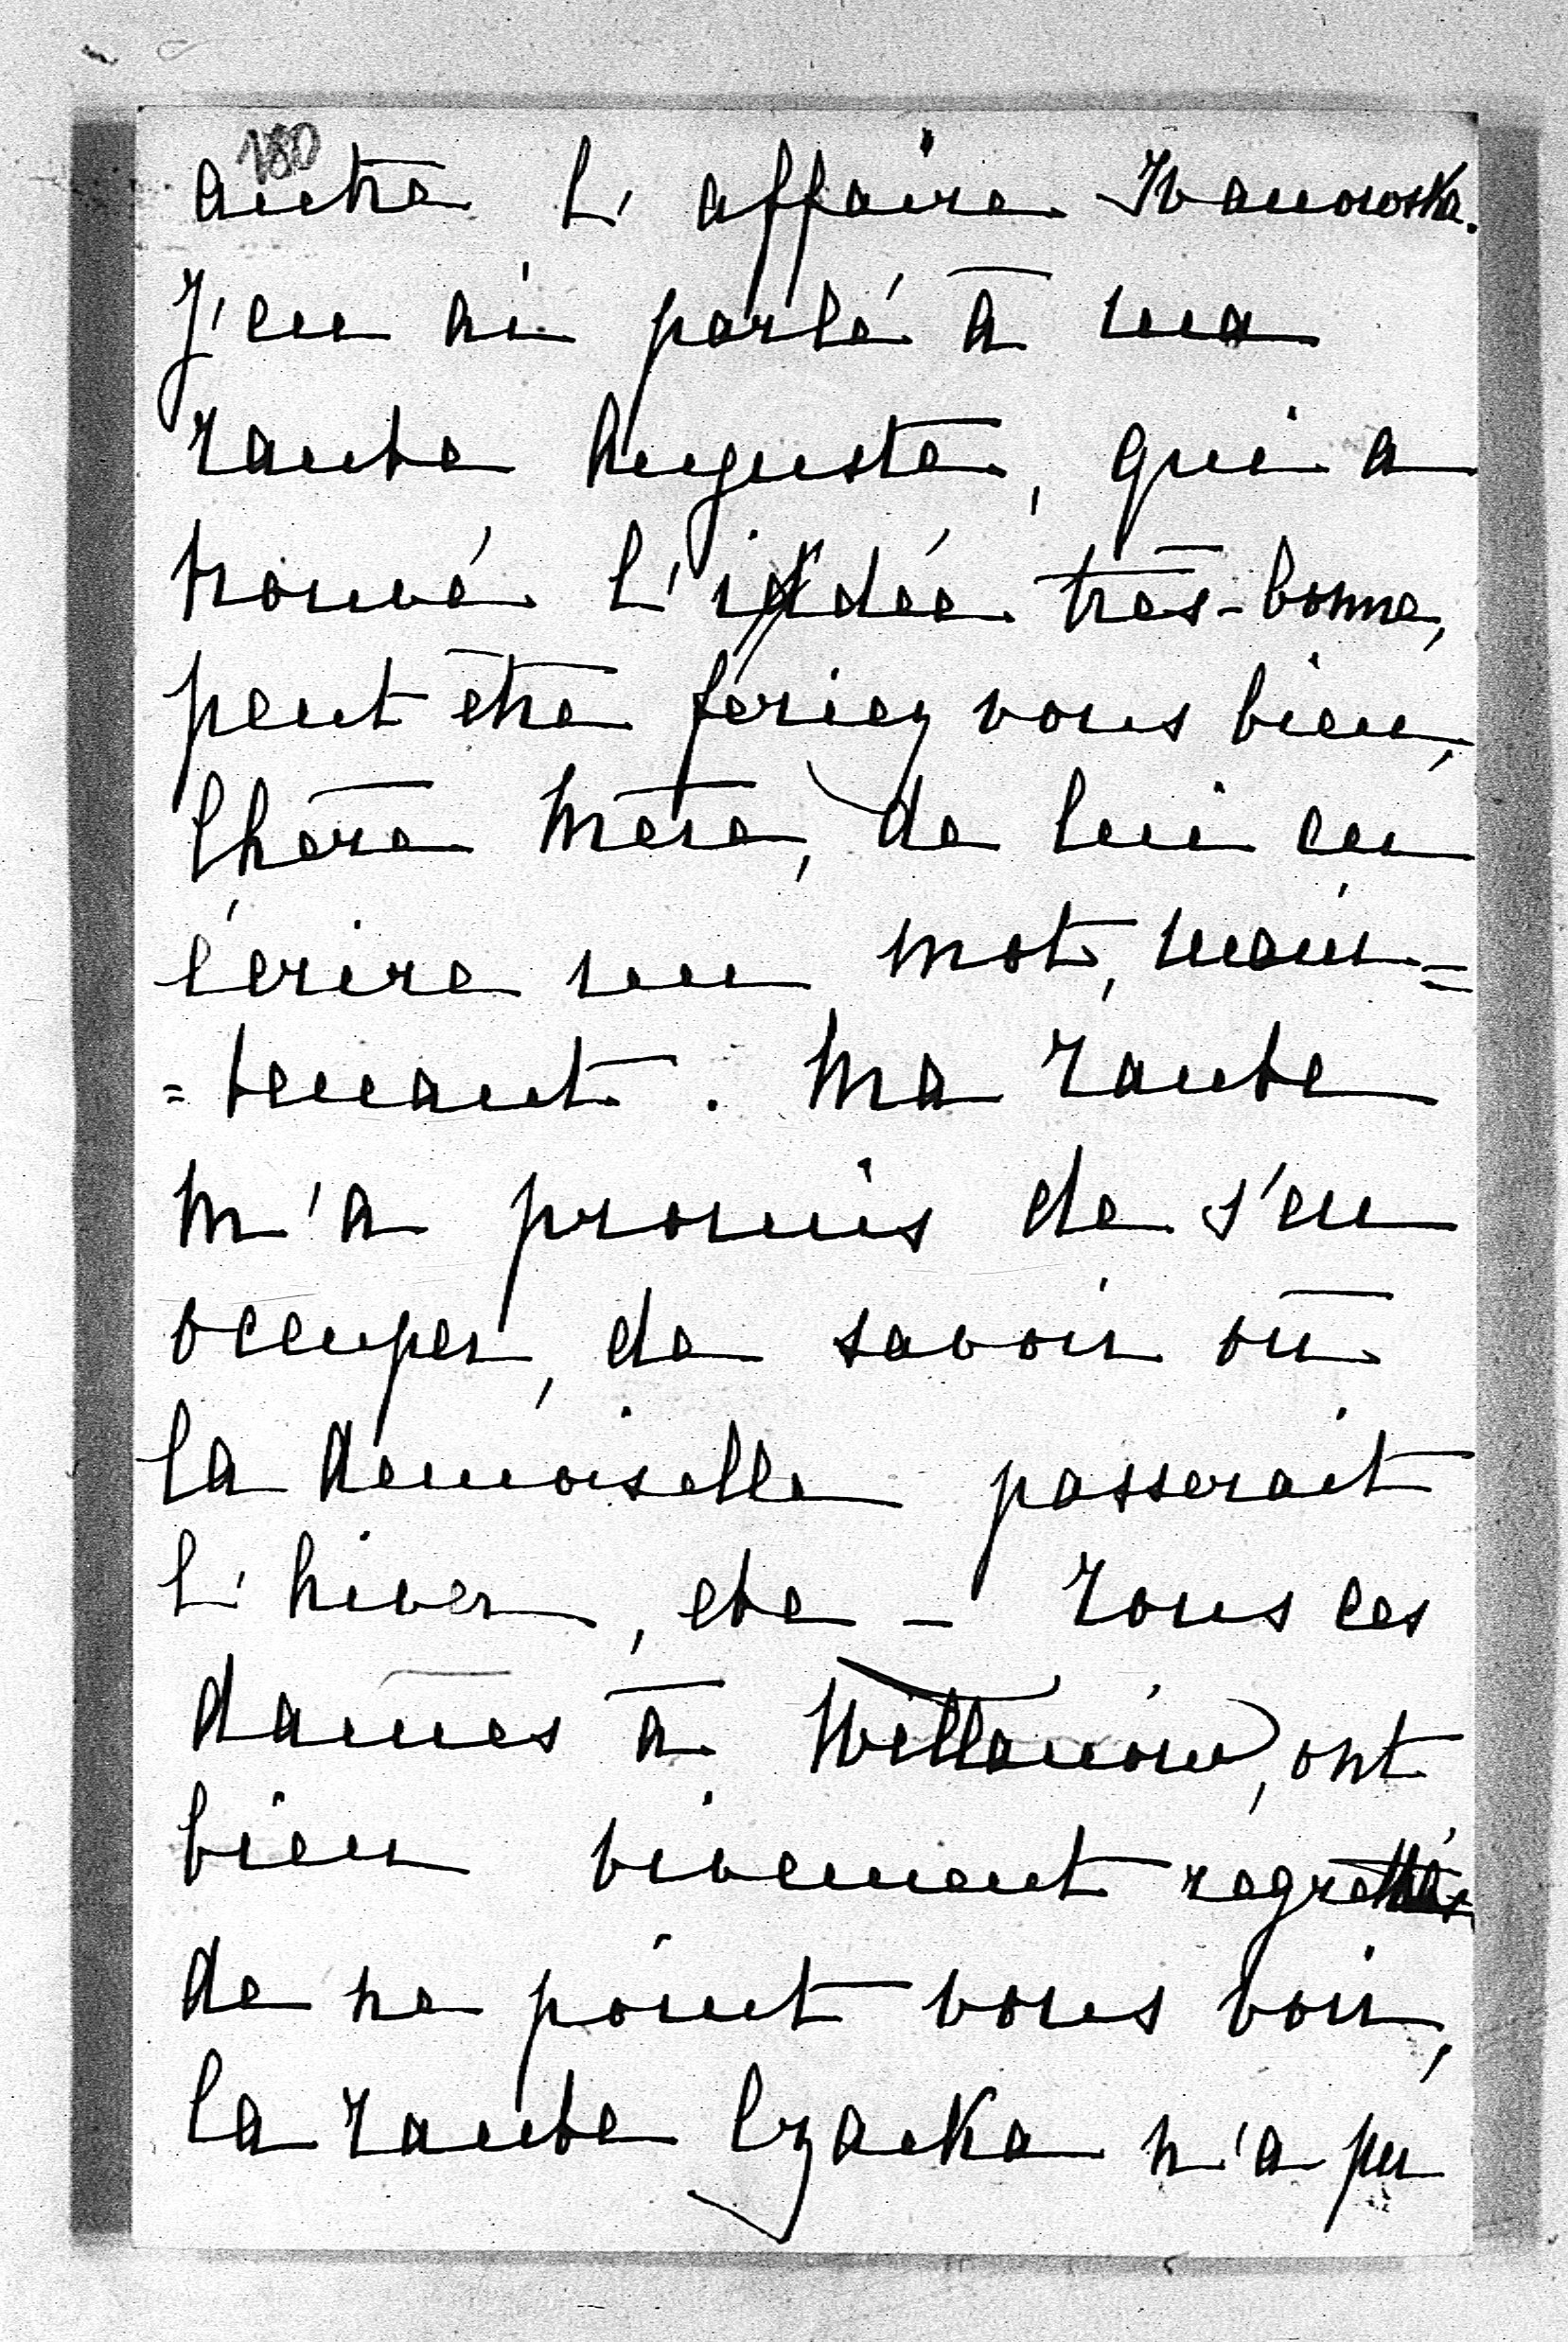 180
autre l'affaire Iwanowska.
J'en ai parlé à ma
Tante Auguste, qui a
trouvé l'idée très-bonne,
peut être feriez vous bien,
Chère Mère, de lui en
écrire un mot, main=
=tenant. Ma Tante
m'a promis de s'en
occuper, de savoir où
la demoiselle passerait
l'hiver, etc – Tous ces
dames à Willanów, ont
bien vivement regretté
de ne point vous voir,
la Tante Czacka n'a pu